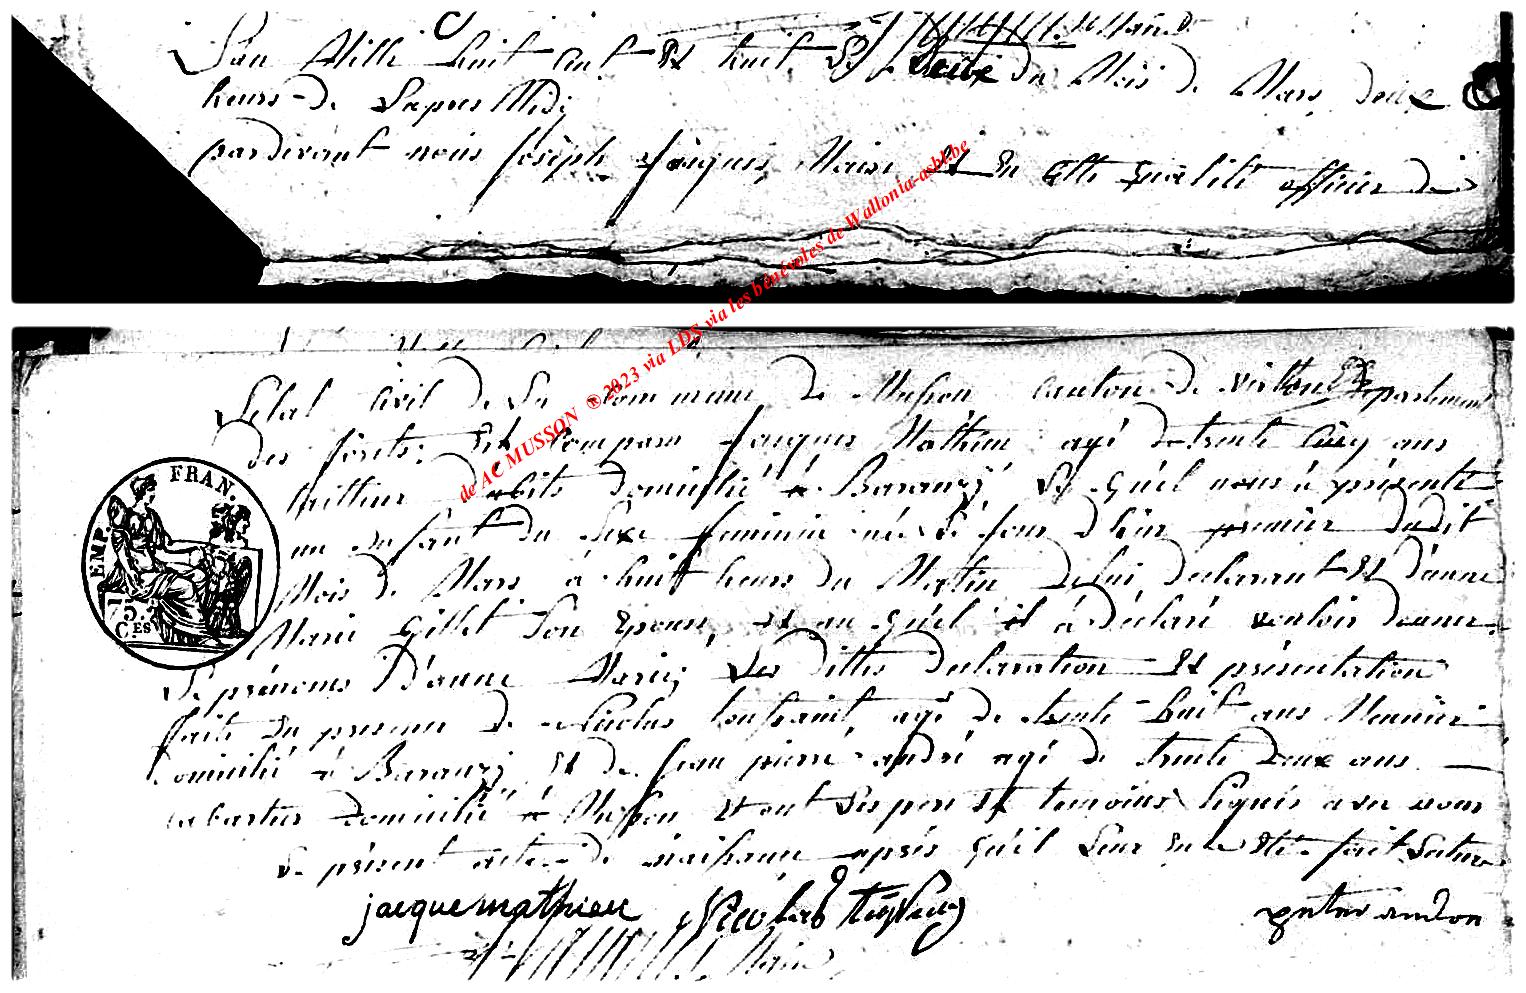 L'an Mille huit Cent Et huit Le Deux du Mois de Mars deux
heures de L'apres Midi
pardevant nous Joseph Jacques Maire Et En Cette Qualité officier de
L'etat Civil de La Commune de Musson Canton de virton Departement
des forêts; Est Comparu Jacques Mathieu agé de trente Cinq ans
tailleur d'abits domicilié á Baranzÿ, Le Quel nous á présenté
un enfant du Sexe feminin née Le Jour d'hier premier dudit
Mois de Mars á huit heures du Matin de lui declarant Et d'anne
Marie Gillet Son Epouse, Et au Quel il á déclaré vouloir donner
Le prénoms D'anne Marie; Les dittes declaration Et présentation
faite En presence de Nicolas toussaint agé de trente huit ans Meunier
domicilié á Baranzÿ Et de Jean pierre andré agé de trente Deux ans
cabartier domicilié á Musson Et ont Les pere Et temoins signés avec nous
Le présent acte de naissance après Qu'il Leur En a Eté fait Lecture
EMP. FRAN.
75. CES
jacque mathieu Nicolas
Maire
de AC MUSSON ® 2023 via LDS via les bénévoles de Wallonia-asbl.be